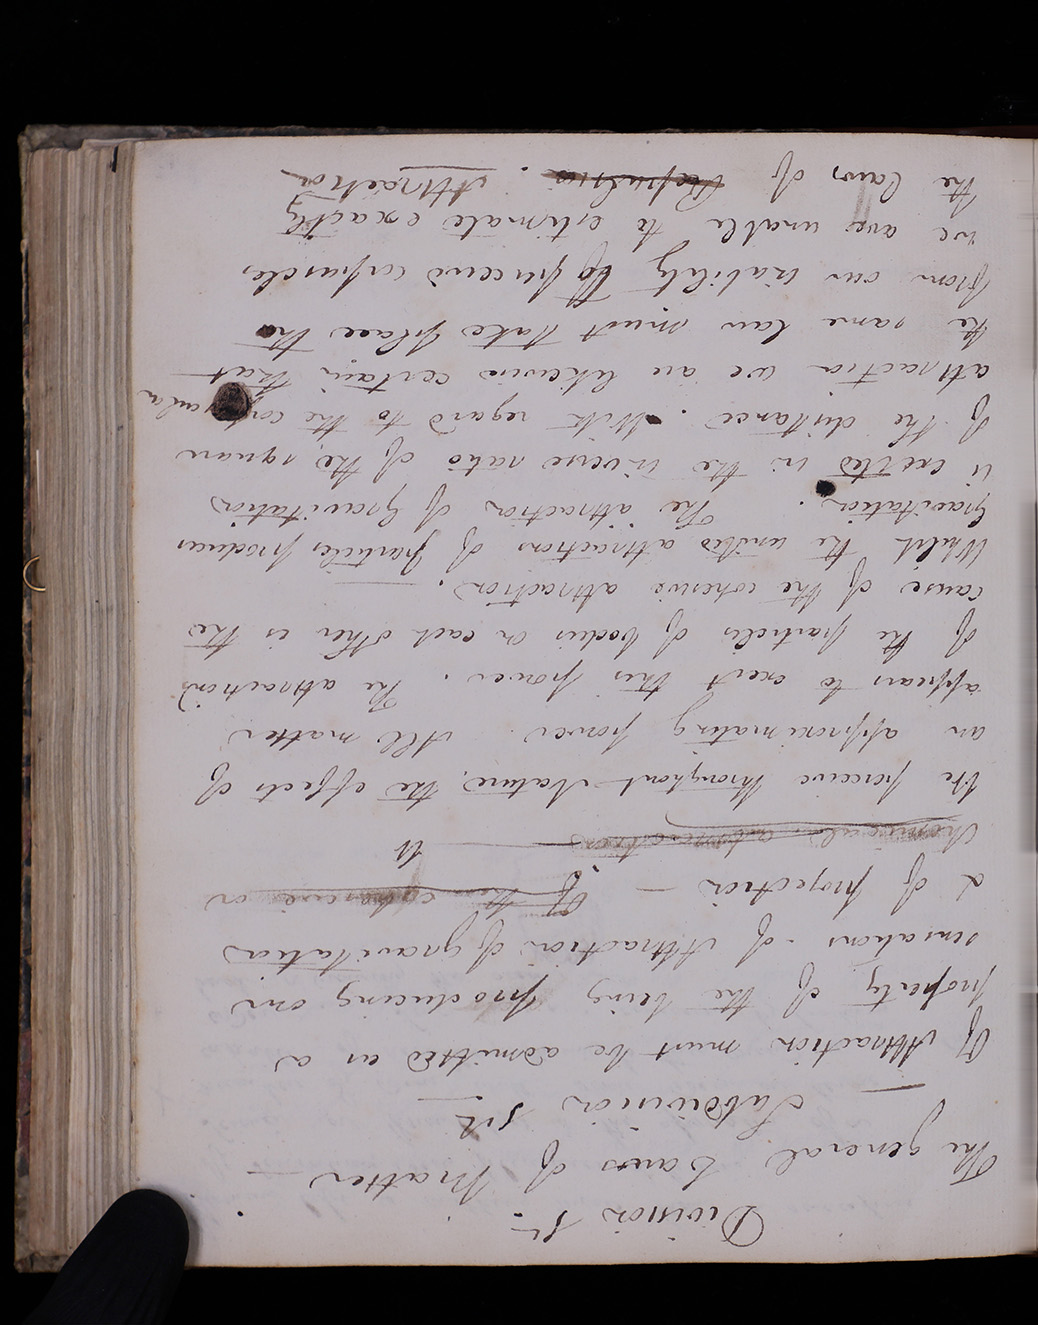 Division 1st
The general Laws of Matter
Subdivision 1st
Of Attraction must be admitted as a
property of the being producing our
sensations - of Attraction of gravitation
& of projection — Of their cohesive or
chemical attractions
We perceive throughout Nature, the effects of
an approximating power. All matter
appears to exert this power. The attraction
of the particles of bodies on each other is the
cause of the cohesive attraction.
Whilst the united attractions of particles produces
gravitation. The attraction of Gravitation
is exerted in the inverse ratio of the square
of the distance. With regard to the corpuscular
attraction we are likewise certain that
the same law must take place tho
from our inability to perceive corpuscles
we are unable to estimate exactly
the laws of Repulsion. Attraction